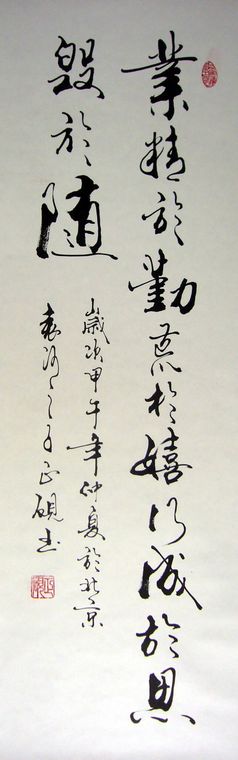 業精於勤荒於嬉行成於思
毀於隨
歲次甲午年仲夏於北京
袁河之子正硯书